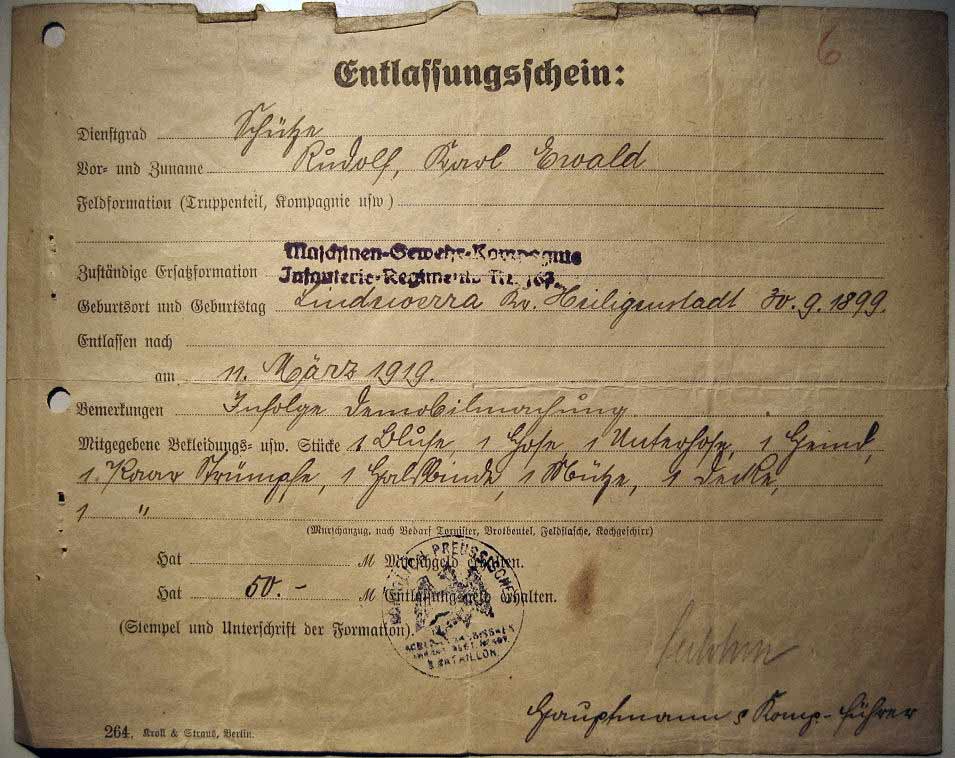 6
Entlassungsschein:
Dienstgrad Schütze
Vor- und Zuname Rudolf, Karl Ewald
Feldformation (Truppenteil, Kompagnie usw)
Maschinen-Gewehr-Kompagnie
Zuständige Ersatzformation Infanterie-Regiments Nr.
Geburtsort und Geburtstag Lindewerra Kr. Heiligenstadt 30.9.1899.
Entlassen nach
am 11. März 1919.
Bemerkungen Infolge Demobilmachung
Mitgegebene Bekleidungs- usw. Stücke 1 Bluse, 1 Hose, 1 Unterhose, 1 Hemd,
1 Paar Strümpfe, 1 Halsbinde, 1 Mütze, 1 Decke,
1 "
(Marschanzug, nach Bedarf Tornister, Brotbeutel, Feldflasche, Kochgeschirr)
Hat M Marschgeld erhalten.
Hat 50.- M Entlassungsgeld erhalten.
PREUSSISCHES
BATAILLON
(Stempel und Unterschrift der Formation).
Hauptmann u Komp.-führer
264. Kroll & Straus, Berlin.